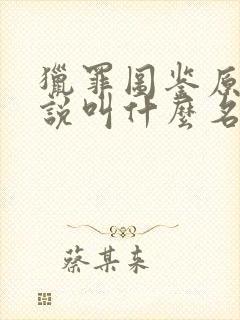 獵罪图鉴原
說叫什麼名
蔡某来